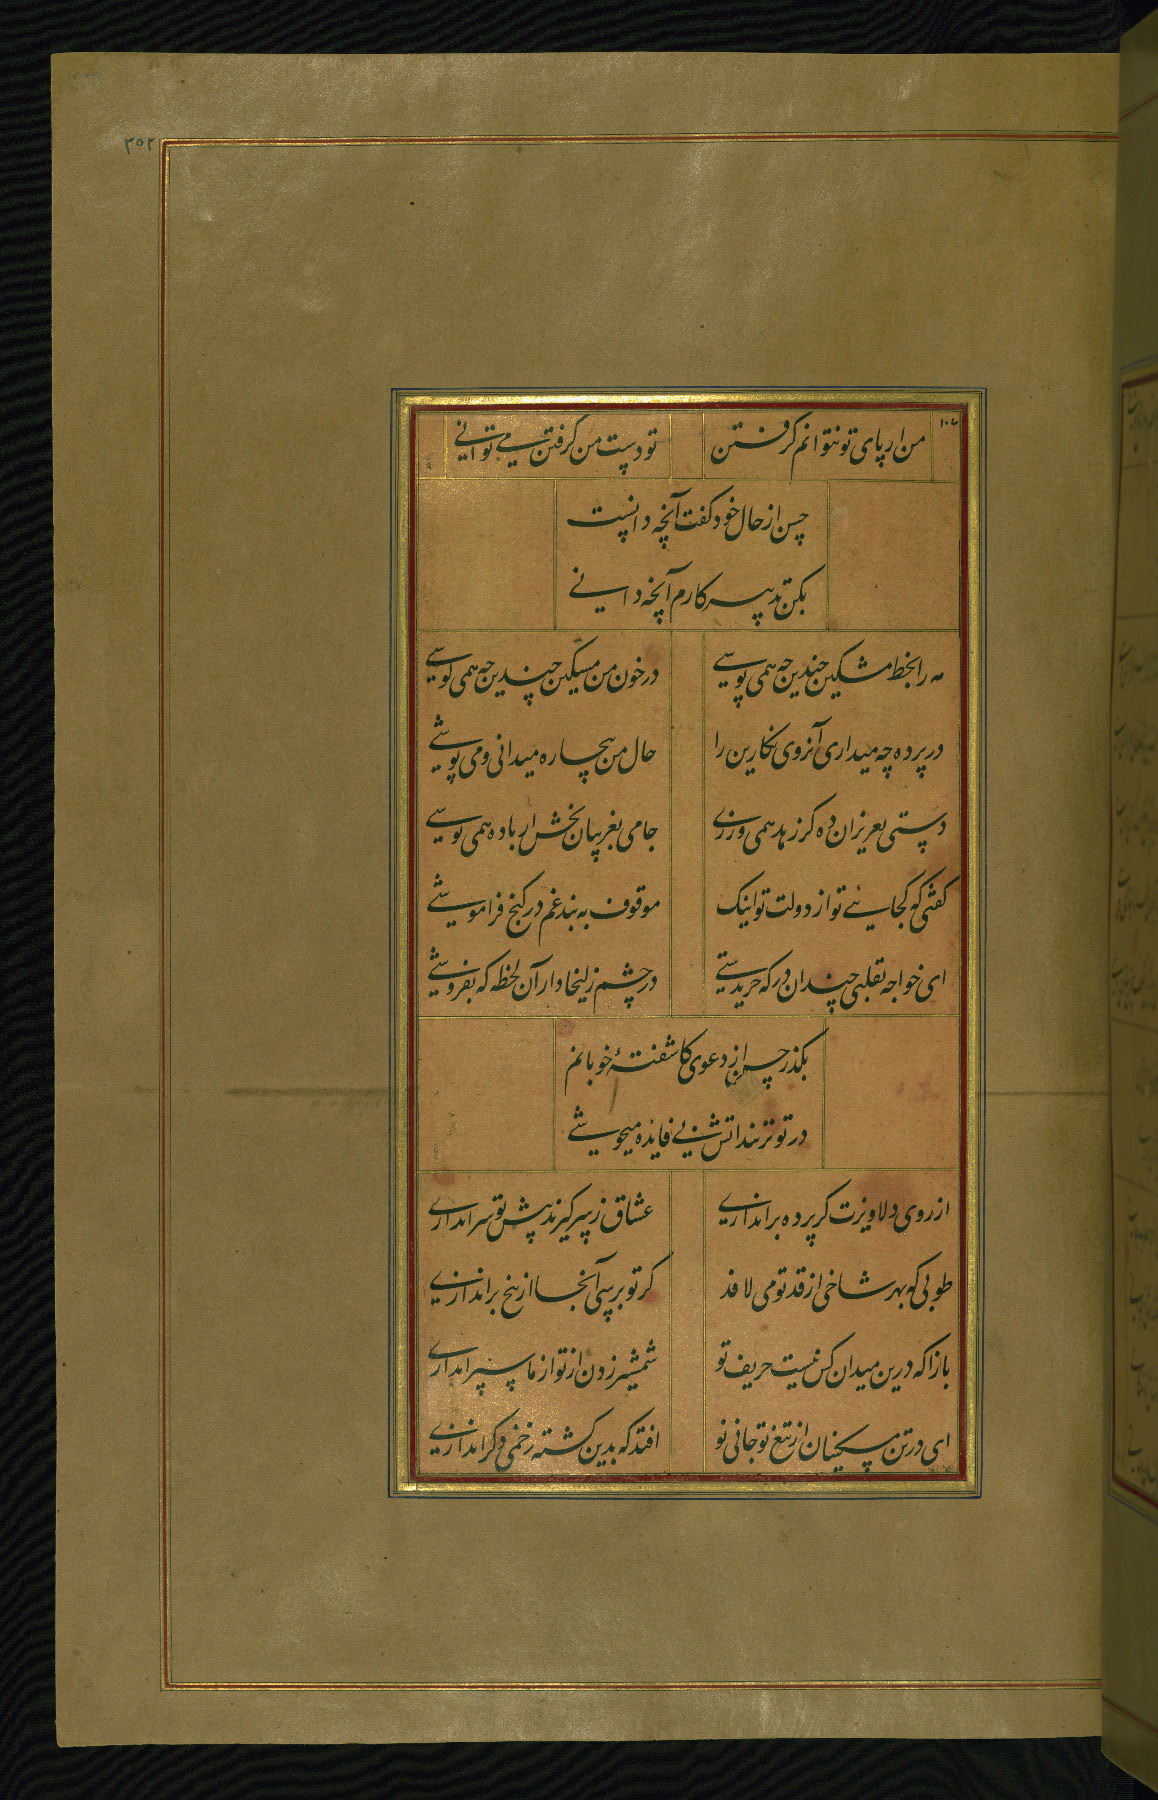 ۳۵۲
۱۰۷
من ار پای تو نتوانم گرفتن تو دست من گرفتن می توانی
حسن از حال خود گفت آنچه دانست
بکن تدبیر کارم آنچه دانی
مه را بخط مشکین چندین چه همی پوسی در خون من مسکین چندین چه همی کوسی
در پرده چه میداری آنروی نکارین را حال من بیچاره میدانی و می پوشی
دستی بعزیزان ده کر زهد همی ورزی جامی بغریبان بخش ار باده همی نوسی
کفتی که کجایئی تو از دولت تو اینک موقوف به بند غم در کنج فراموشی
ای خواجه بقلبی چندان در که خریدستی در چشم زلیخا دار آن لحظه که بفروشی
بکذر حسن از دعوی کاشفتهٔ خوبانم
در تو نزند آتش بی فایده میجوشی
از روی دلاویزت کر پرده براندازی عشاق ز سر کیرند پیش تو سر اندازی
طوبی که بهر شاخی از قد تو می لافد کر تو برسی آنجا از بیخ براندازی
بازآ که درین میدان کس نیست حریف تو شمشیر زدن از تو از ما سپر اندازی
ای در تن مسکینان از تیغ تو جانی نو افتد که بدین کشته زخمی دکر اندازی